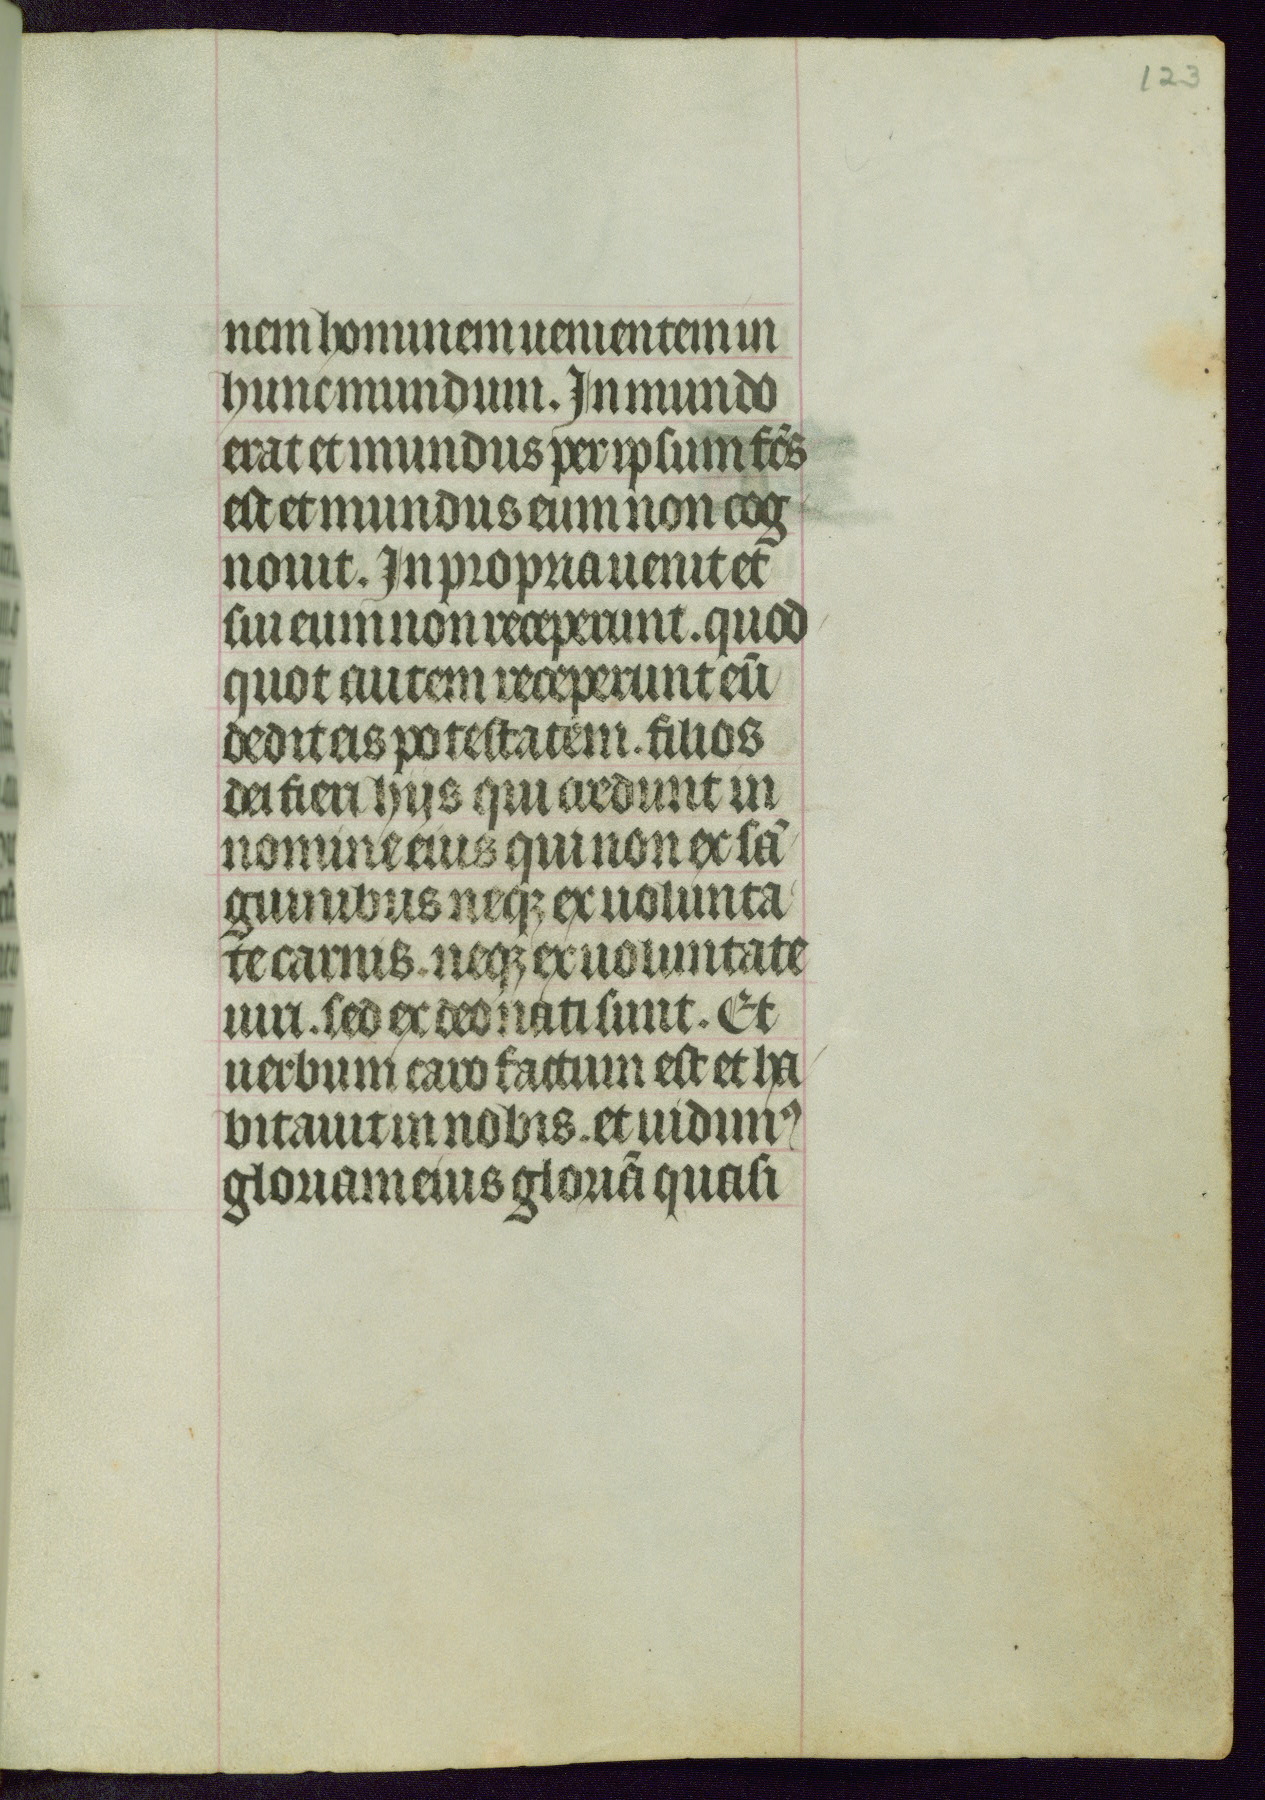 123
nem hominem uenientem in
hunc mundum. In mundo
erat et mundus per ipsum fc̄s
est et mundus eum non cog
nouit. In propria uenit et
sui eum non receperunt. quod
quot autem receperunt eū
dedit eis potestatem. filios
dei fieri hijs qui credunt in
nomine eius qui non ex sā
guinibus neqꝫ ex uolunta
te carnis. neqꝫ ex uoluntate
uiri. sed ex deo nati sunt. Et
uerbum caro factum est et ha
bitauit in nobis. et uidimꝰ
gloriam eius gloriā quasi